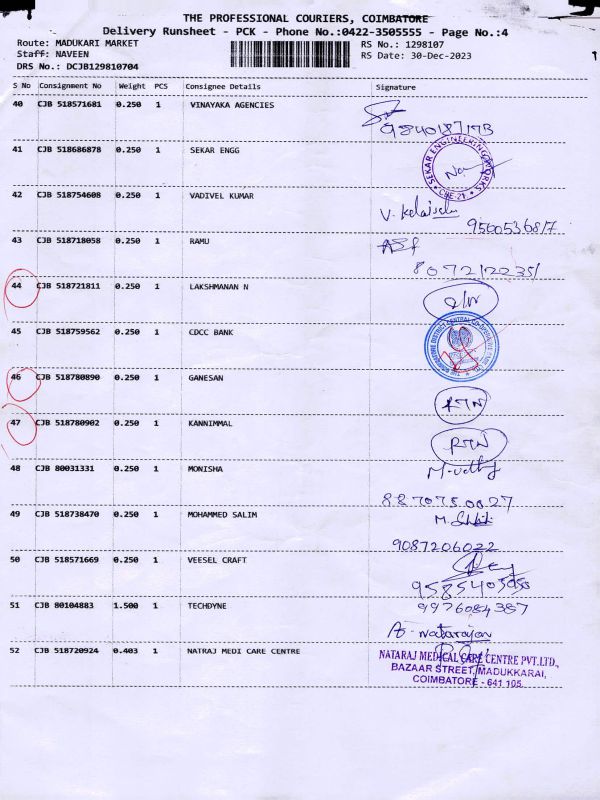 THE PROFESSIONAL COURIERS, COIMBATORE
Delivery Runsheet - PCK - Phone No.:0422-3505555 - Page No.:4
Route: MADUKARI MARKET
Staff: NAVEEN
DRS No.: DCJB129810704
RS No.: 1298107
RS Date: 30-Dec-2023
S No Consignment No Weight PCS Consignee Details Signature
40 CJB 518571681 0.250 1 VINAYAKA AGENCIES
41 CJB 518686878 0.250 1 SEKAR ENGG
SEKAR ENGINEERING WORKS
42 CJB 518754608 0.250 1 VADIVEL KUMAR
9500536817
43 CJB 518718058 0.250 1 RAMU
44 CJB 518721811 0.250 1 LAKSHMANAN N
45 CJB 518759562 0.250 1 CDCC BANK
46 CJB 518780890 0.250 1 GANESAN
RTN
47 CJB 518780902 0.250 1 KANNIMMAL
RTN
48 CJB 80031331 0.250 1 MONISHA
49 CJB 518738470 0.250 1 MOHAMMED SALIM
9087206022
50 CJB 518571669 0.250 1 VEESEL CRAFT
51 CJB 80104883 1.500 1 TECHDYNE
9976084387
A. Natarajan
52 CJB 518720924 0.403 1 NATRAJ MEDI CARE CENTRE
NATARAJ MEDICAL CARE CENTRE PVT.LTD.,
BAZAAR STREET, MADUKKARAI,
COIMBATORE - 641 105